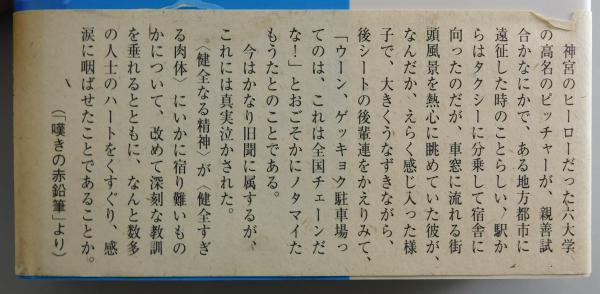 神宮のヒーローだった六大学
の高名のピッチャーが、親善試
合かなにかで、ある地方都市に
遠征した時のことらしい、駅か
らはタクシーに分乗して宿舎に
向ったのだが、車窓に流れる街
頭風景を熱心に眺めていた彼が、
なんだか、えらく感じ入った様
子で、大きくうなずきながら、
後シートの後輩連をかえりみて、
「ウーン、ゲッキョク駐車場っ
てのは、これは全国チェーンだ
な！」とおごそかにノタマイた
もうたとのことである。
今はかなり旧聞に属するが、
これには真実泣かされた。
〈健全なる精神〉が〈健全すぎ
る肉体〉にいかに宿り難いもの
かについて、改めて深刻な教訓
を垂れるとともに、なんと数多
の人士のハートをくすぐり、感
涙に咽ばせたことであることか。
（「嘆きの赤鉛筆」より）